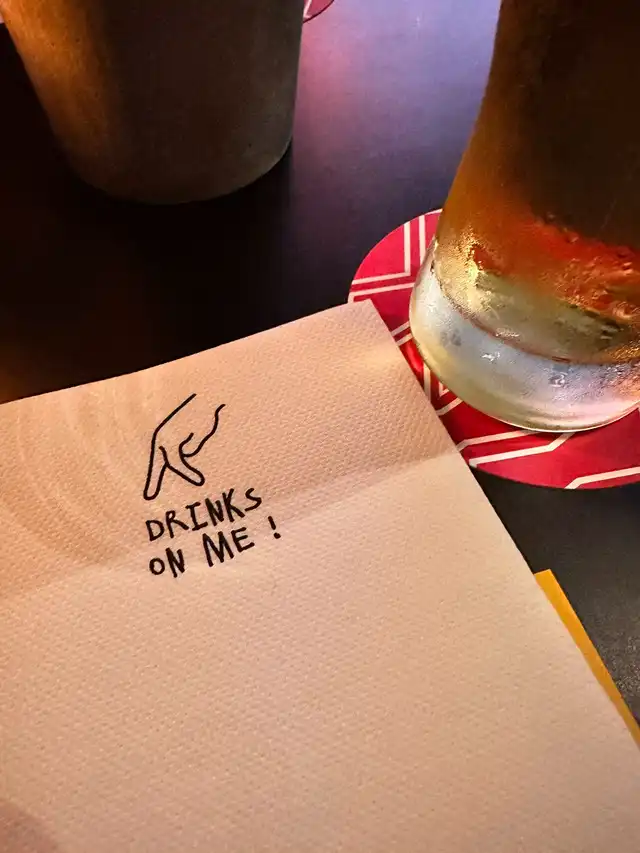 DRINKS
ON ME !